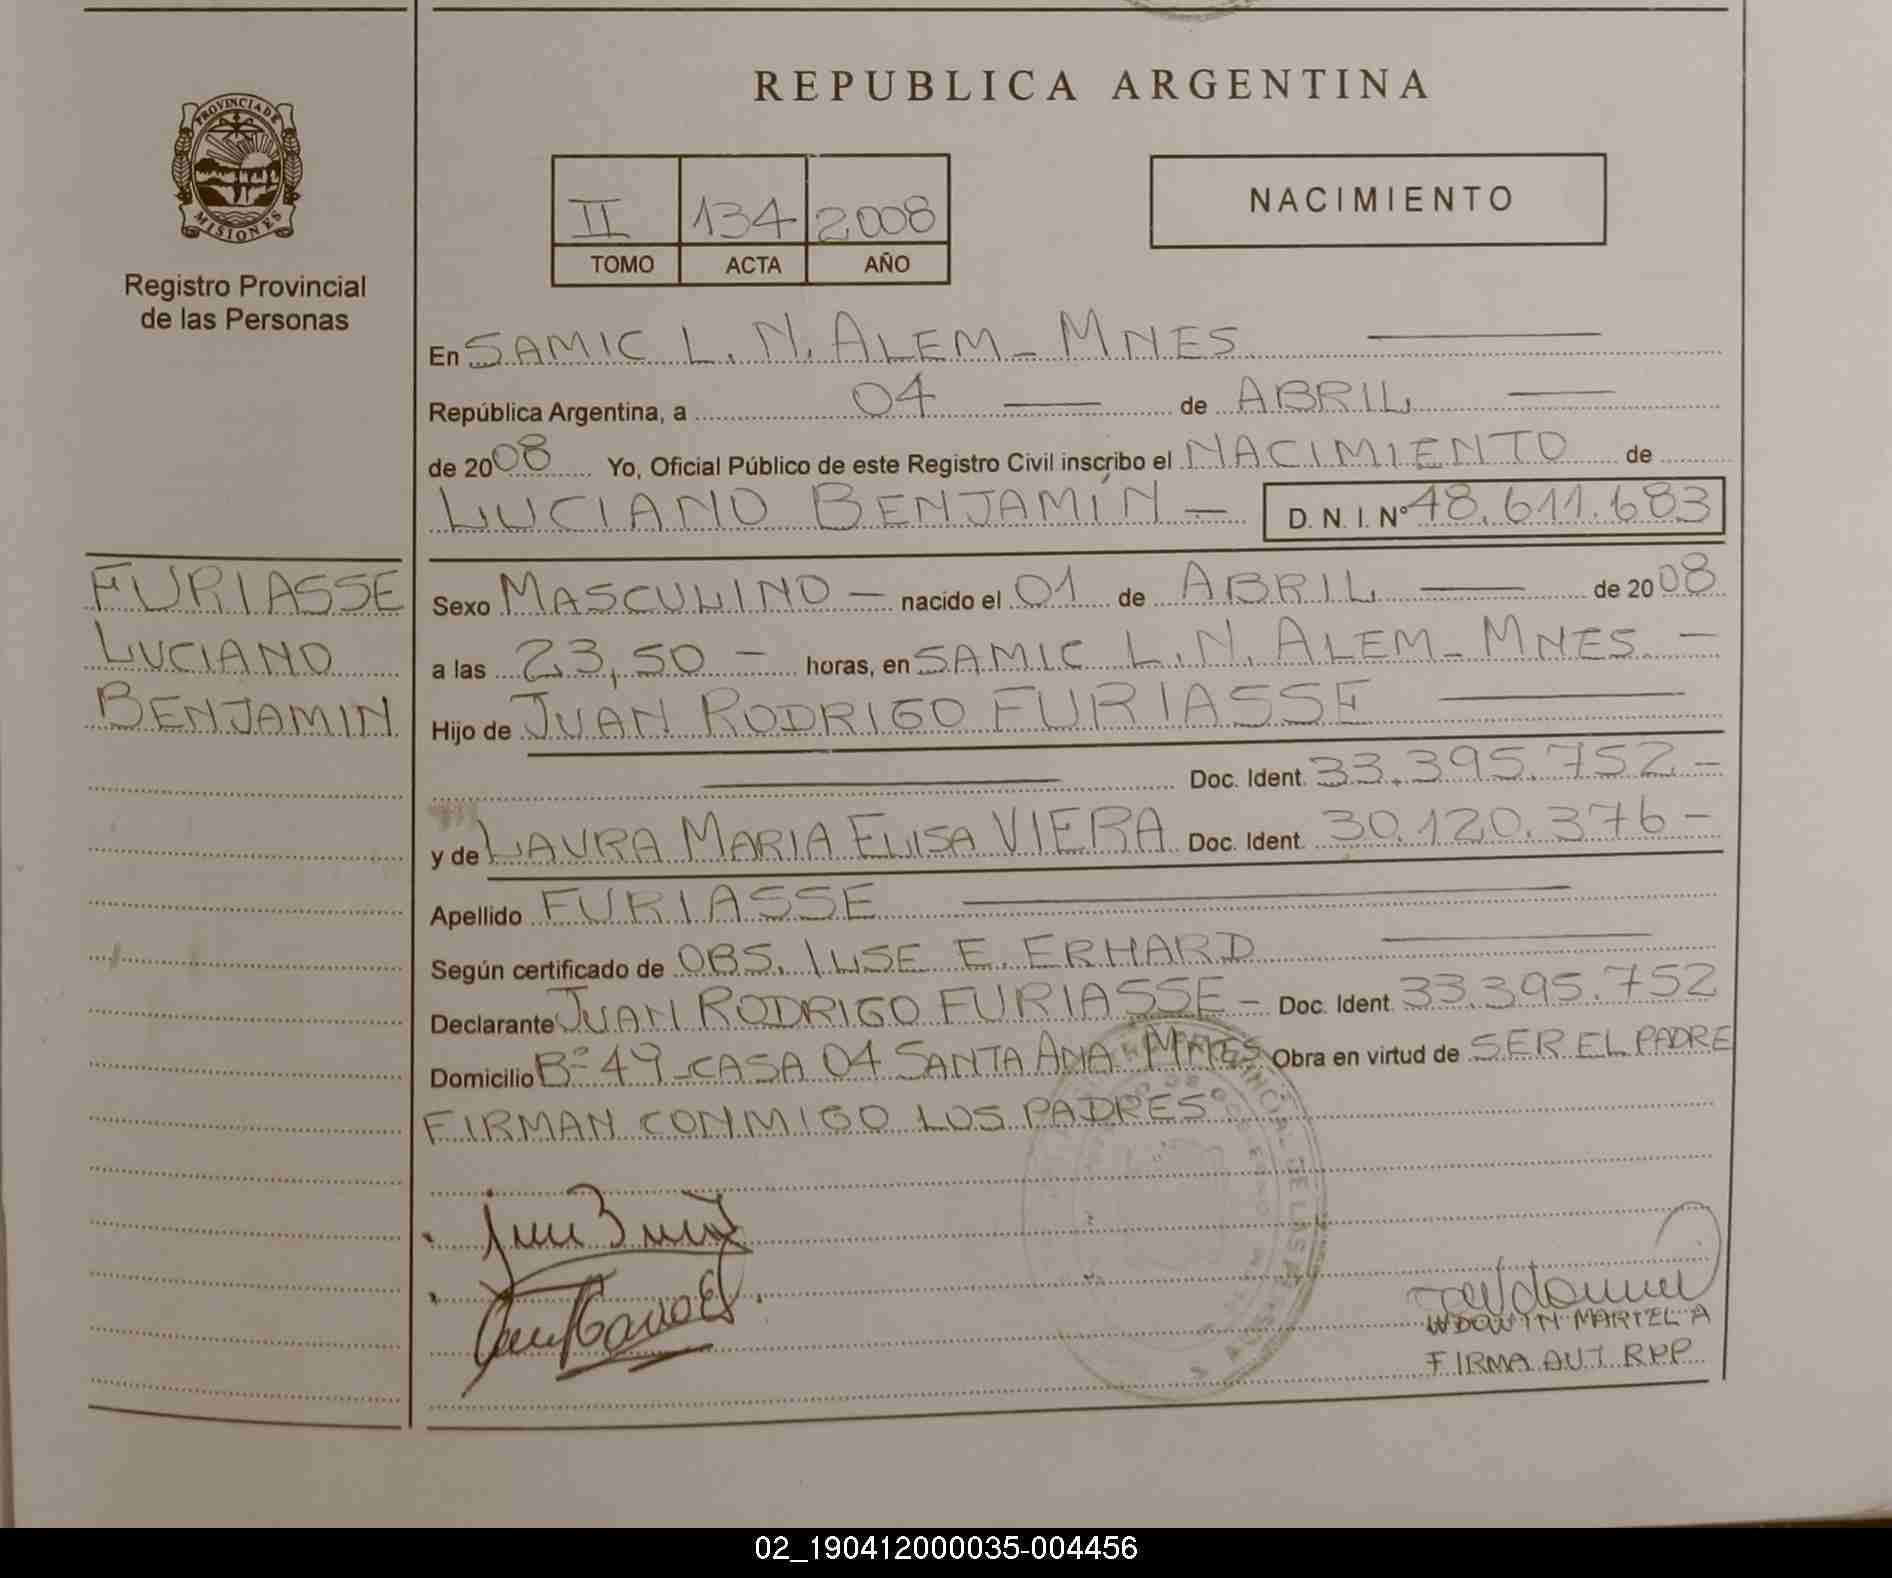 REPUBLICA ARGENTINA
PROVINCIA DE
MISIONES
Registro Provincial
de las Personas
II 134 2008
TOMO ACTA AÑO
NACIMIENTO
En SAMIC L. N. ALEM - MNES
República Argentina, a 04 de ABRIL
de 2008 Yo, Oficial Público de este Registro Civil inscribo el NACIMIENTO de
LUCIANO BENJAMÍN - D. N. I. Nº 48.611.683
FURIASSE
LUCIANO
BENJAMIN
Sexo MASCULINO - nacido el 01 de ABRIL de 2008
a las 23,50 - horas, en SAMIC L. N. ALEM - MNES -
Hijo de JUAN RODRIGO FURIASSE
Doc. Ident. 33.395.752 -
y de LAURA MARIA ELISA VIERA Doc. Ident. 30.120.376 -
Apellido FURIASSE
Según certificado de OBS. ILSE E. ERHARD
Declarante JUAN RODRIGO FURIASSE - Doc. Ident. 33.395.752
Domicilio Bº 49 - CASA 04 SANTA ANA MNES Obra en virtud de SER EL PADRE
FIRMAN CONMIGO LOS PADRES
WDOWIN MARIEL A
FIRMA AUT RPP
02_190412000035-004456